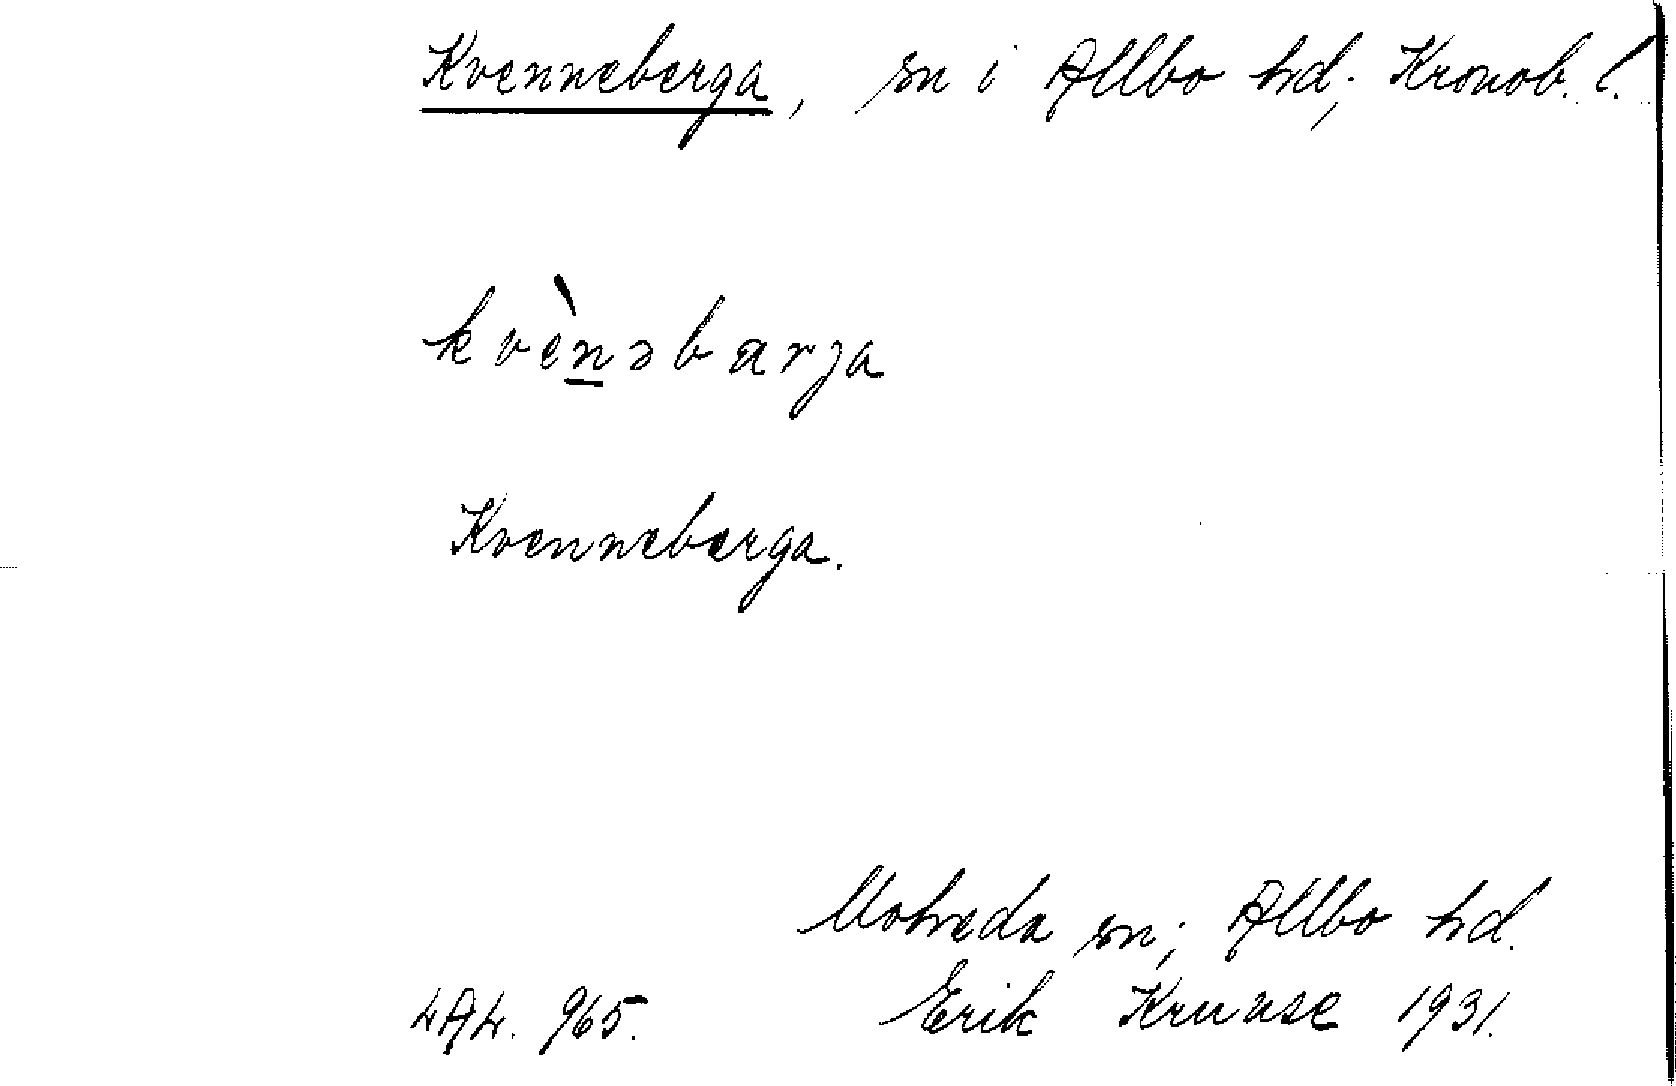 Kvenneberga, sn i Allbo hd; Kronob. l.
kvènəbarja
Kvenneberga.
Moheda sn; Allbo hd.
LAL. 965. Erik Kruuse 1931.